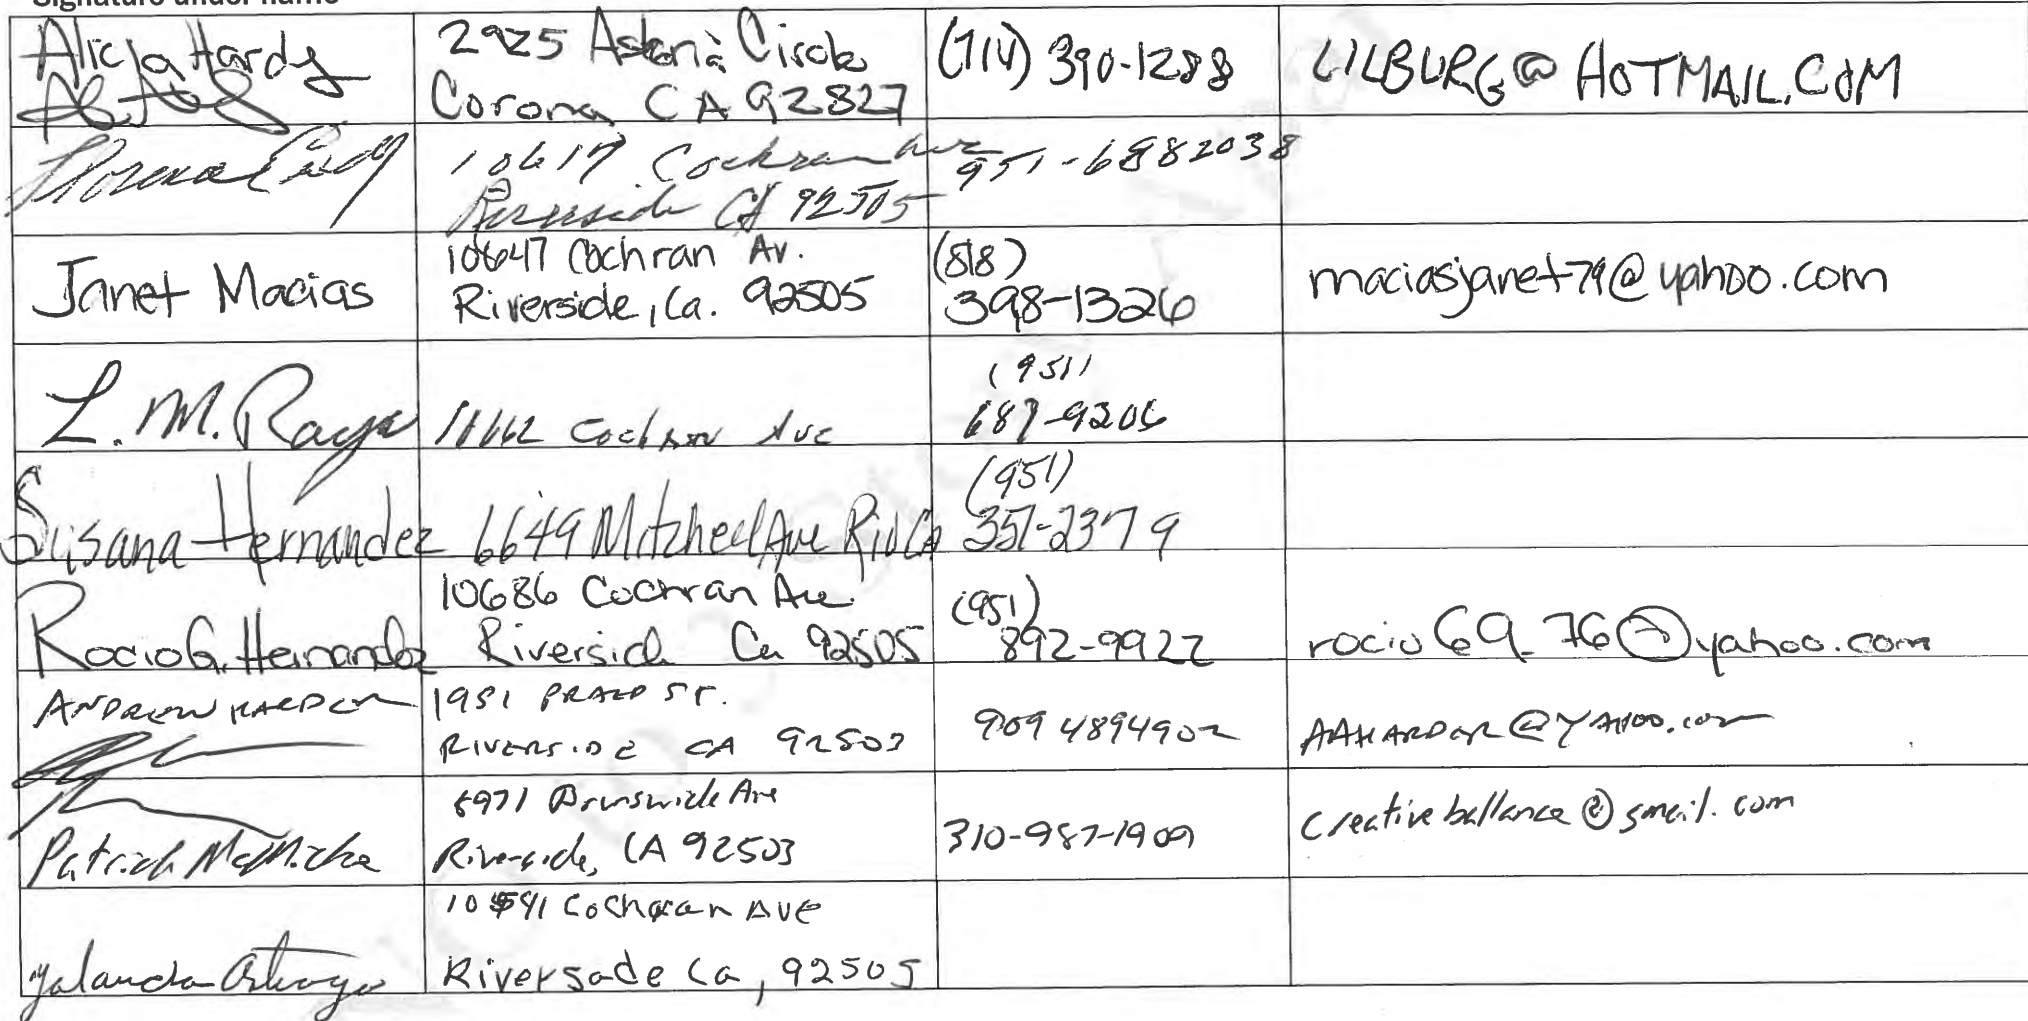 Signature under name
Alicia Hardy
2925 Astoria Circle
Corona CA 92827
(714) 390-1288
LILBURG@HOTMAIL.COM
10617 Cochran Ave
Riverside CA 92505
951-6882038
Janet Macias
10647 Cochran Av.
Riverside, Ca. 92505
(818)
398-1326
maciasjanet79@yahoo.com
L. M. Raya
10662 Cochran Ave
(951)
687-9206
Susana Hernandez
6649 Mitchell Ave Riv Ca
(951)
351-2379
Rocio G. Hernandez
10686 Cochran Ave.
Riverside Ca 92505
(951)
892-9922
rocio69_76@yahoo.com
ANDREW HARDER
1951 PRADO ST.
RIVERSIDE CA 92503
909 4894902
AAHARDER@YAHOO.com
Patrick
8971 Brunswick Ave
Riverside, CA 92503
310-987-1909
creativeballance@gmail.com
Cochran AVE
Riversade Ca, 92505